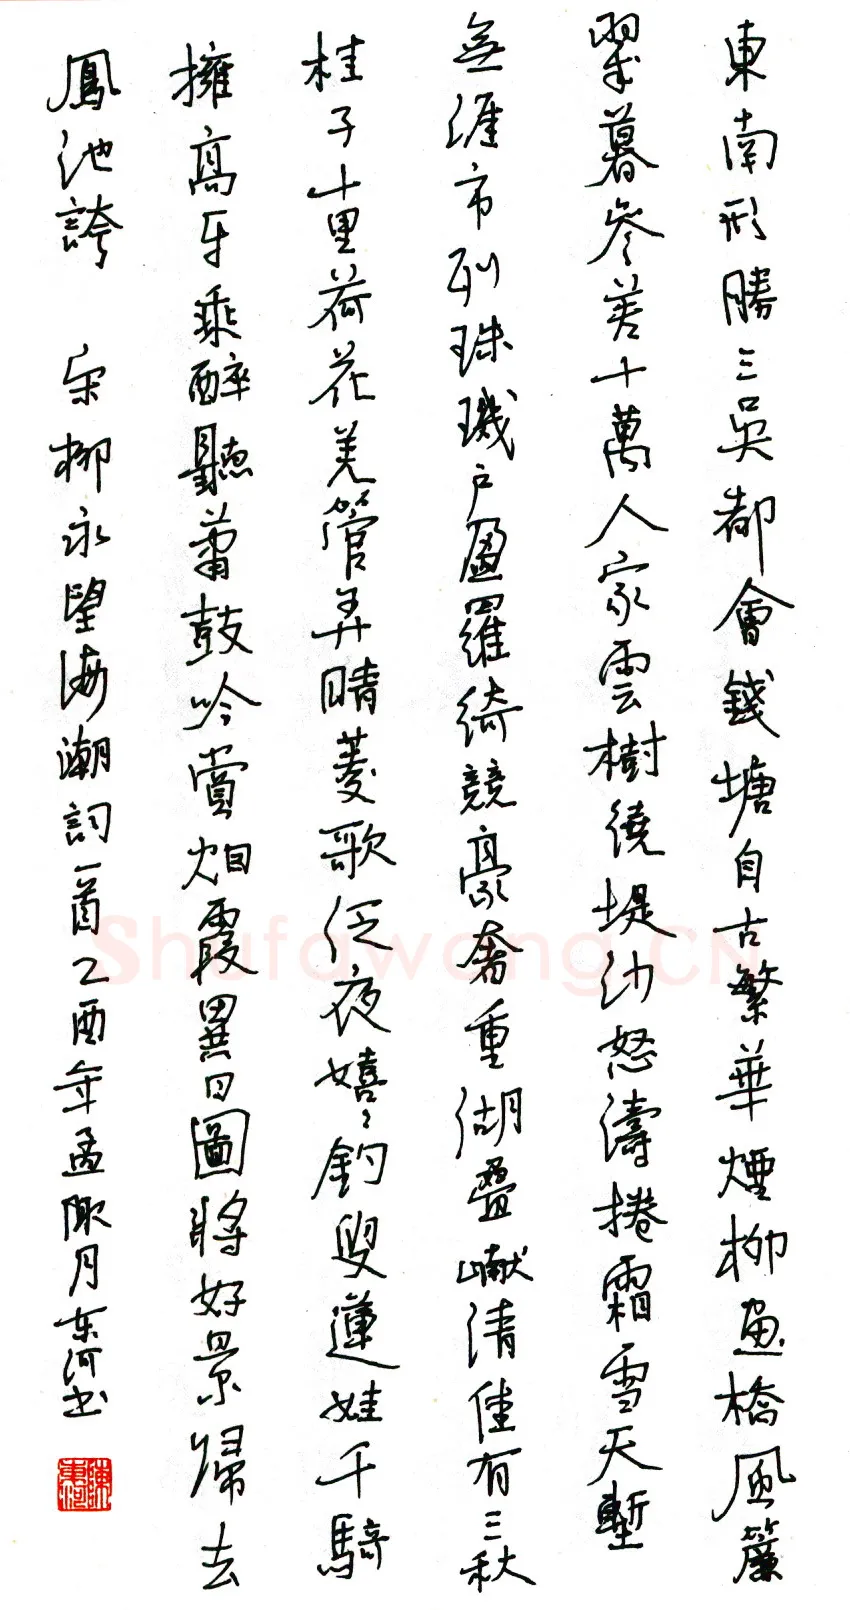 東南形勝三吳都會錢塘自古繁華煙柳畫橋風簾
翠暮參差十萬人家雲樹繞堤沙怒濤捲霜雪天塹
無涯市列珠璣戶盈羅綺競豪奢重湖疊巘清佳有三秋
桂子十里荷花羌管弄晴菱歌泛夜嬉〻釣叟蓮娃千騎
擁高牙乘醉聽蕭鼓吟賞烟霞異日圖將好景歸去
鳳池誇 宋柳永望海潮詞一首乙酉年孟陬月东河书
陳東河
Shufawang.CN